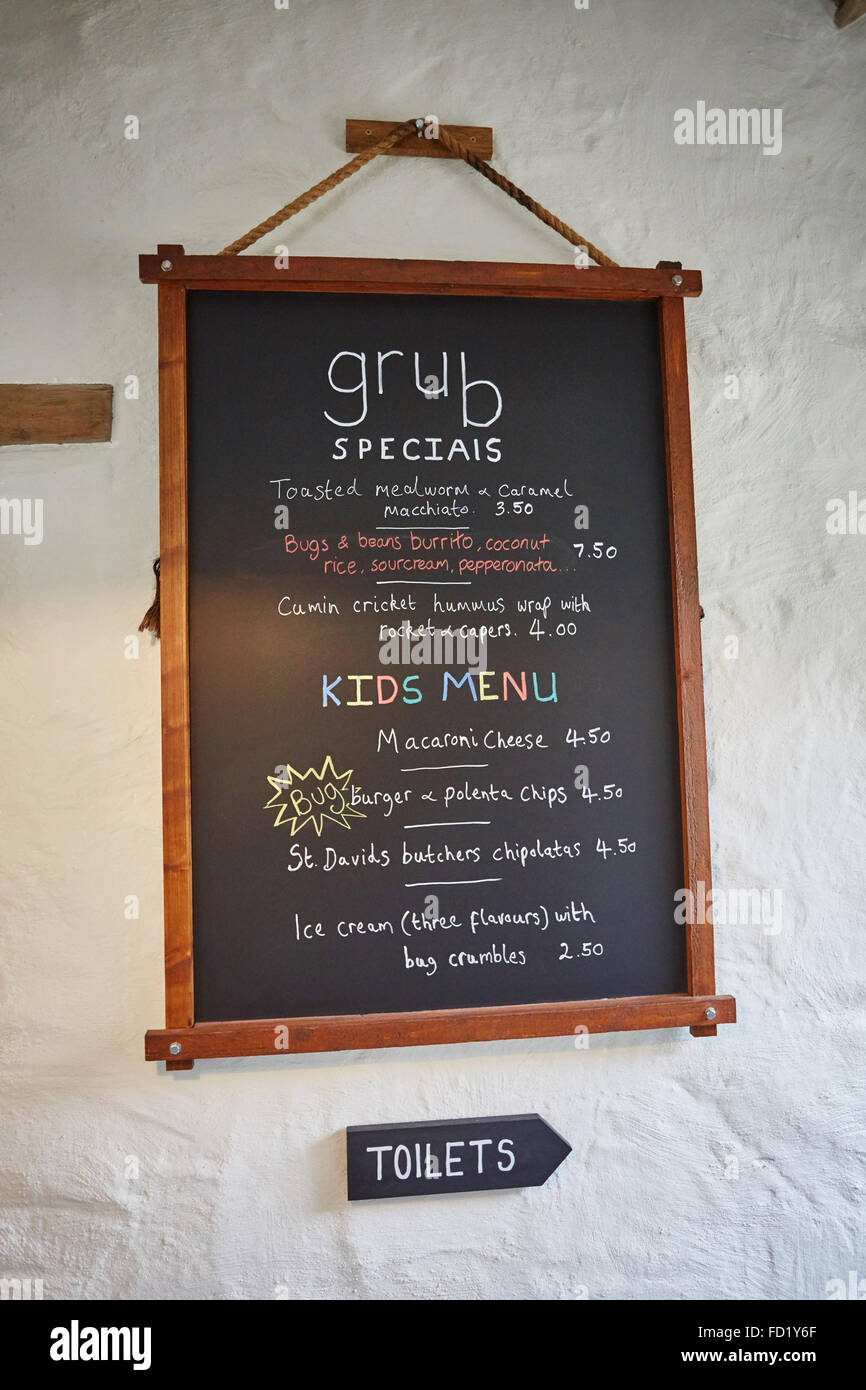 grub
SPECIALS
Toasted mealworm & caramel
macchiato. 3.50
Bugs & beans burrito, coconut 7.50
rice, sourcream, pepperonata...
Cumin cricket hummus wrap with
rocket & capers. 4.00
KIDS MENU
Macaroni Cheese 4.50
Bug burger & polenta chips 4.50
St. Davids butchers chipolatas 4.50
Ice cream (three flavours) with
bug crumbles 2.50
TOILETS
alamy
a
alamy stock photo
FD1Y6F
www.alamy.com